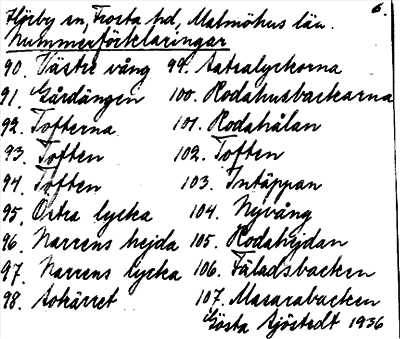 6.
Hörby sn, Frosta hd, Malmöhus län.
Nummerförklaringar
90. Västre vång 99. Aatralyckorna
91. Gårdängen 100. Rodahusbackarna
92. Tofterna 101. Rodahålan
93. Toften 102. Toften
94. Toften 103. Intäppan
95. Östra lycka 104. Nyvång
96. Narrens hejda 105. Rodahejdan
97. Narrens lycka 106. Fäladsbacken
98. Aokärret 107. Masarabacken
Gösta Sjöstedt 1936